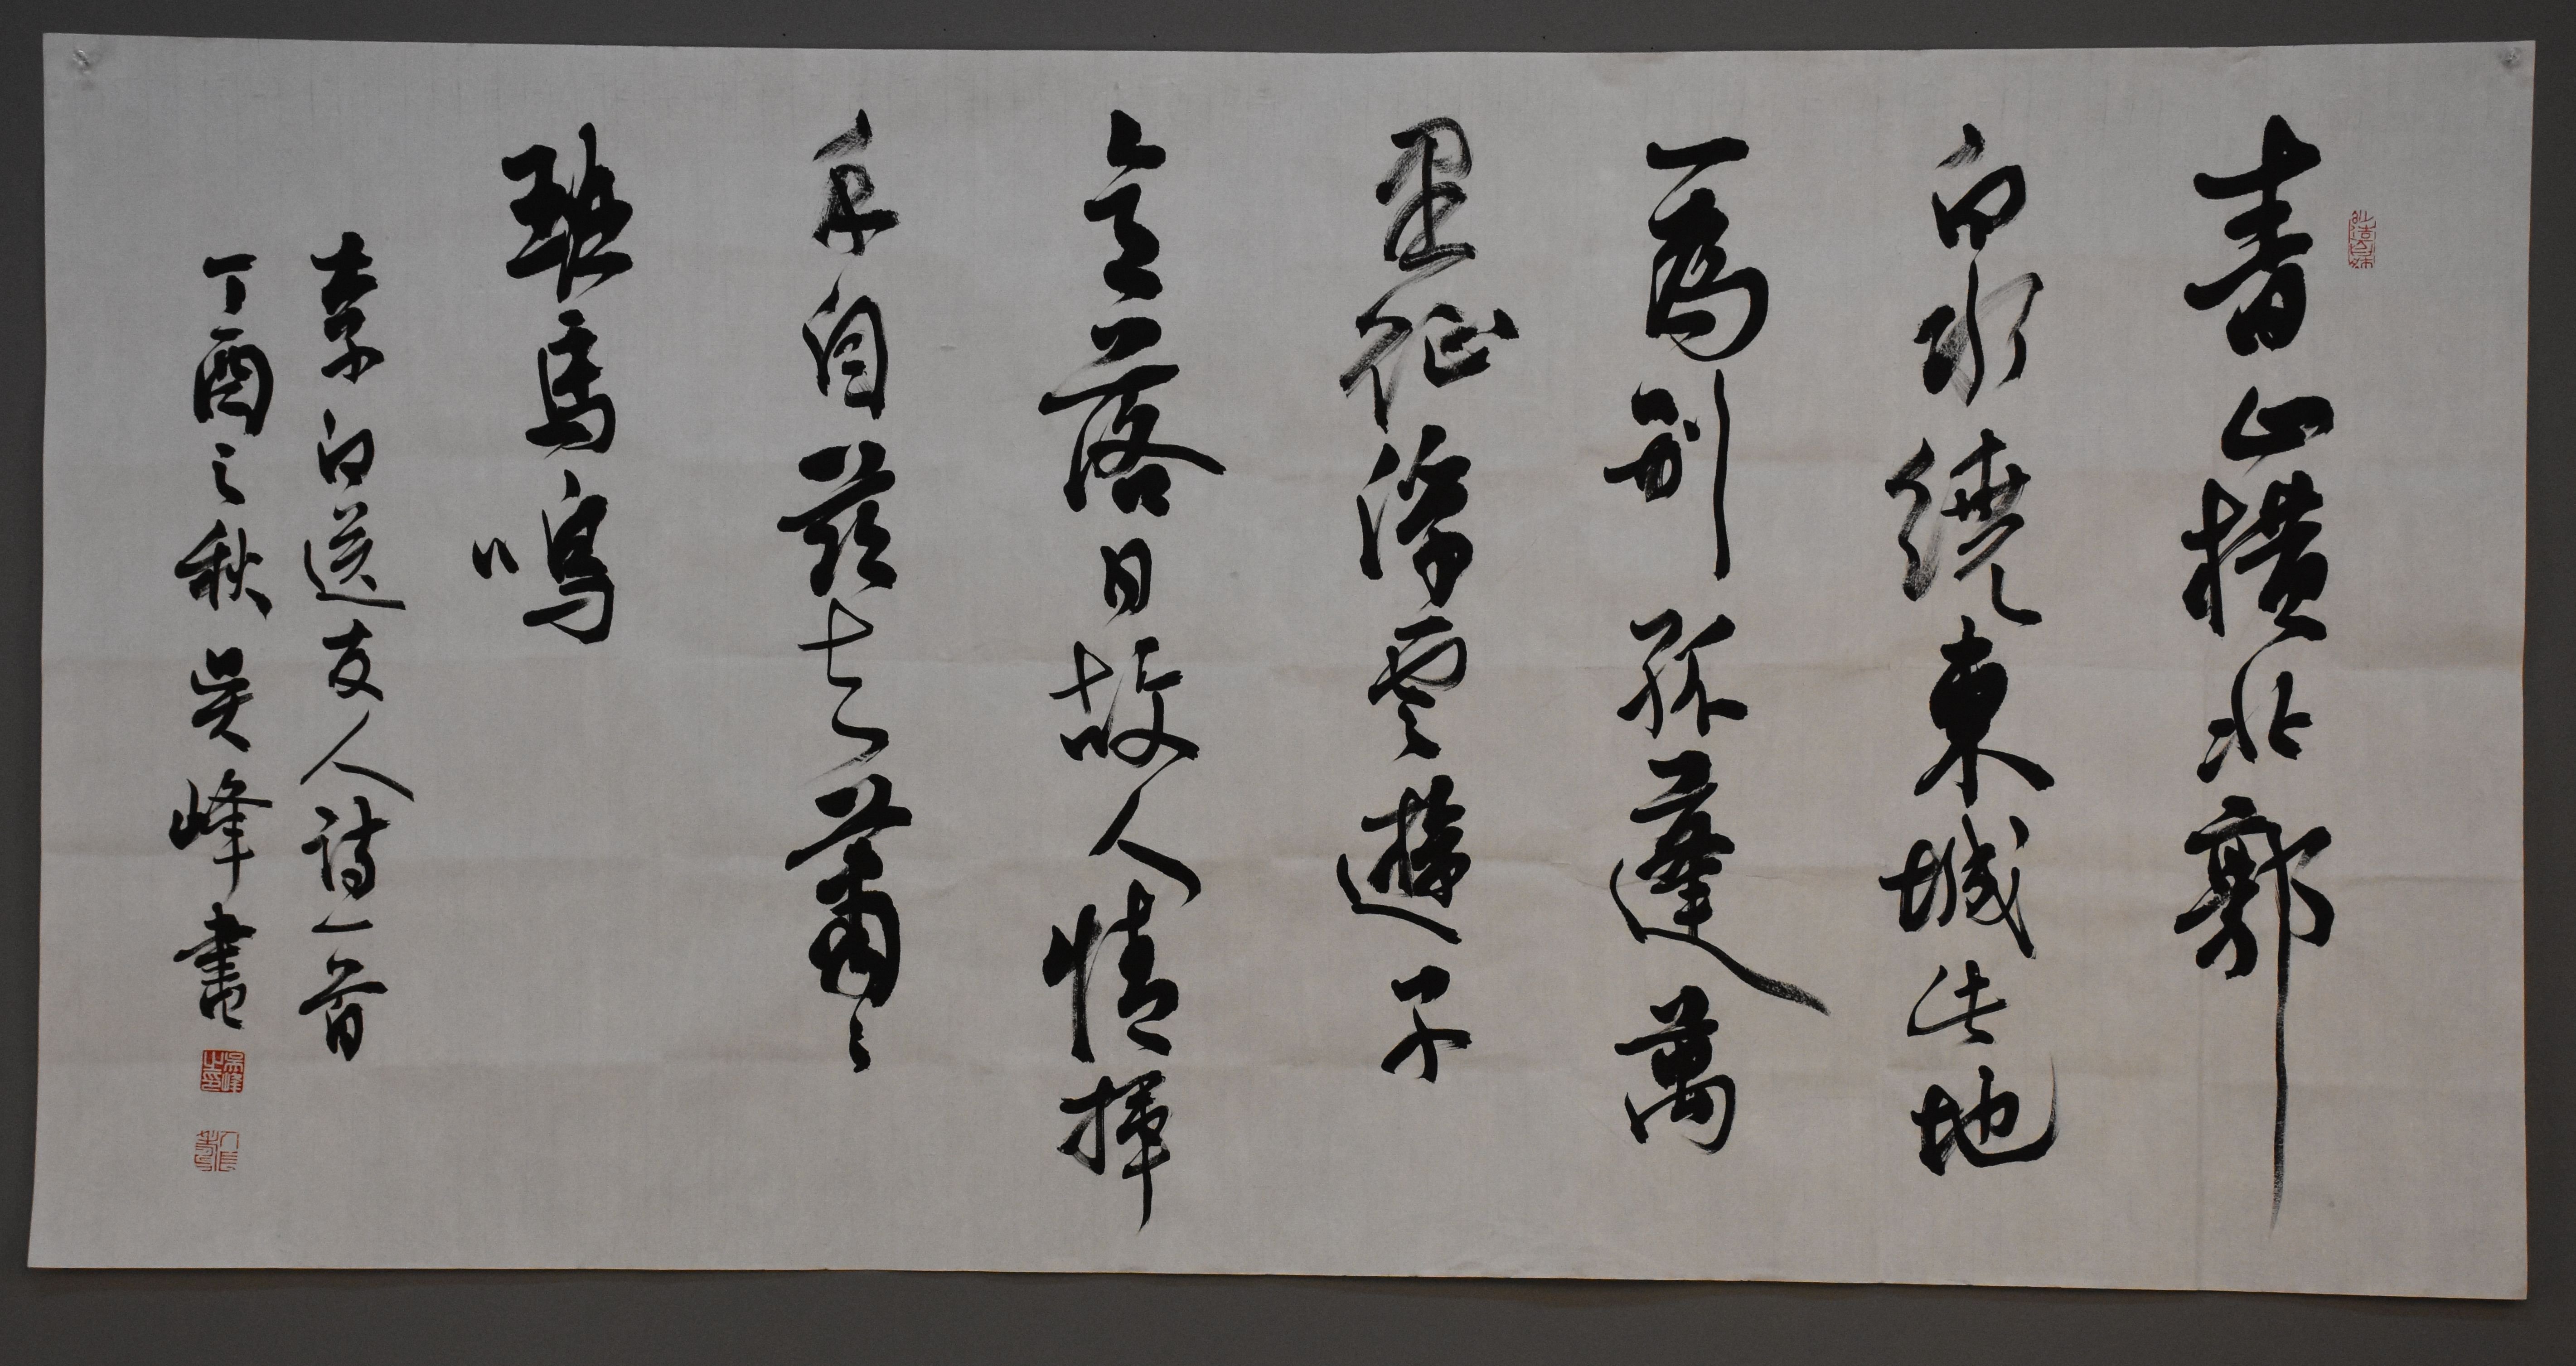 青山橫北郭
白水繞東城此地
一為別孤蓬萬
里征浮雲遊子
意落日故人情揮
手自茲去蕭々
班馬鳴
李白送友人詩一首
丁酉之秋吳峰書
吳峰之印